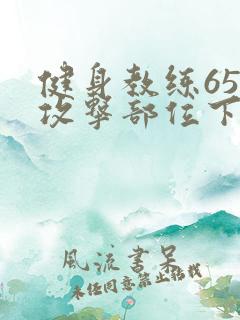 健身教练65
攻击部位下
風流書呆
未经同意禁止转载